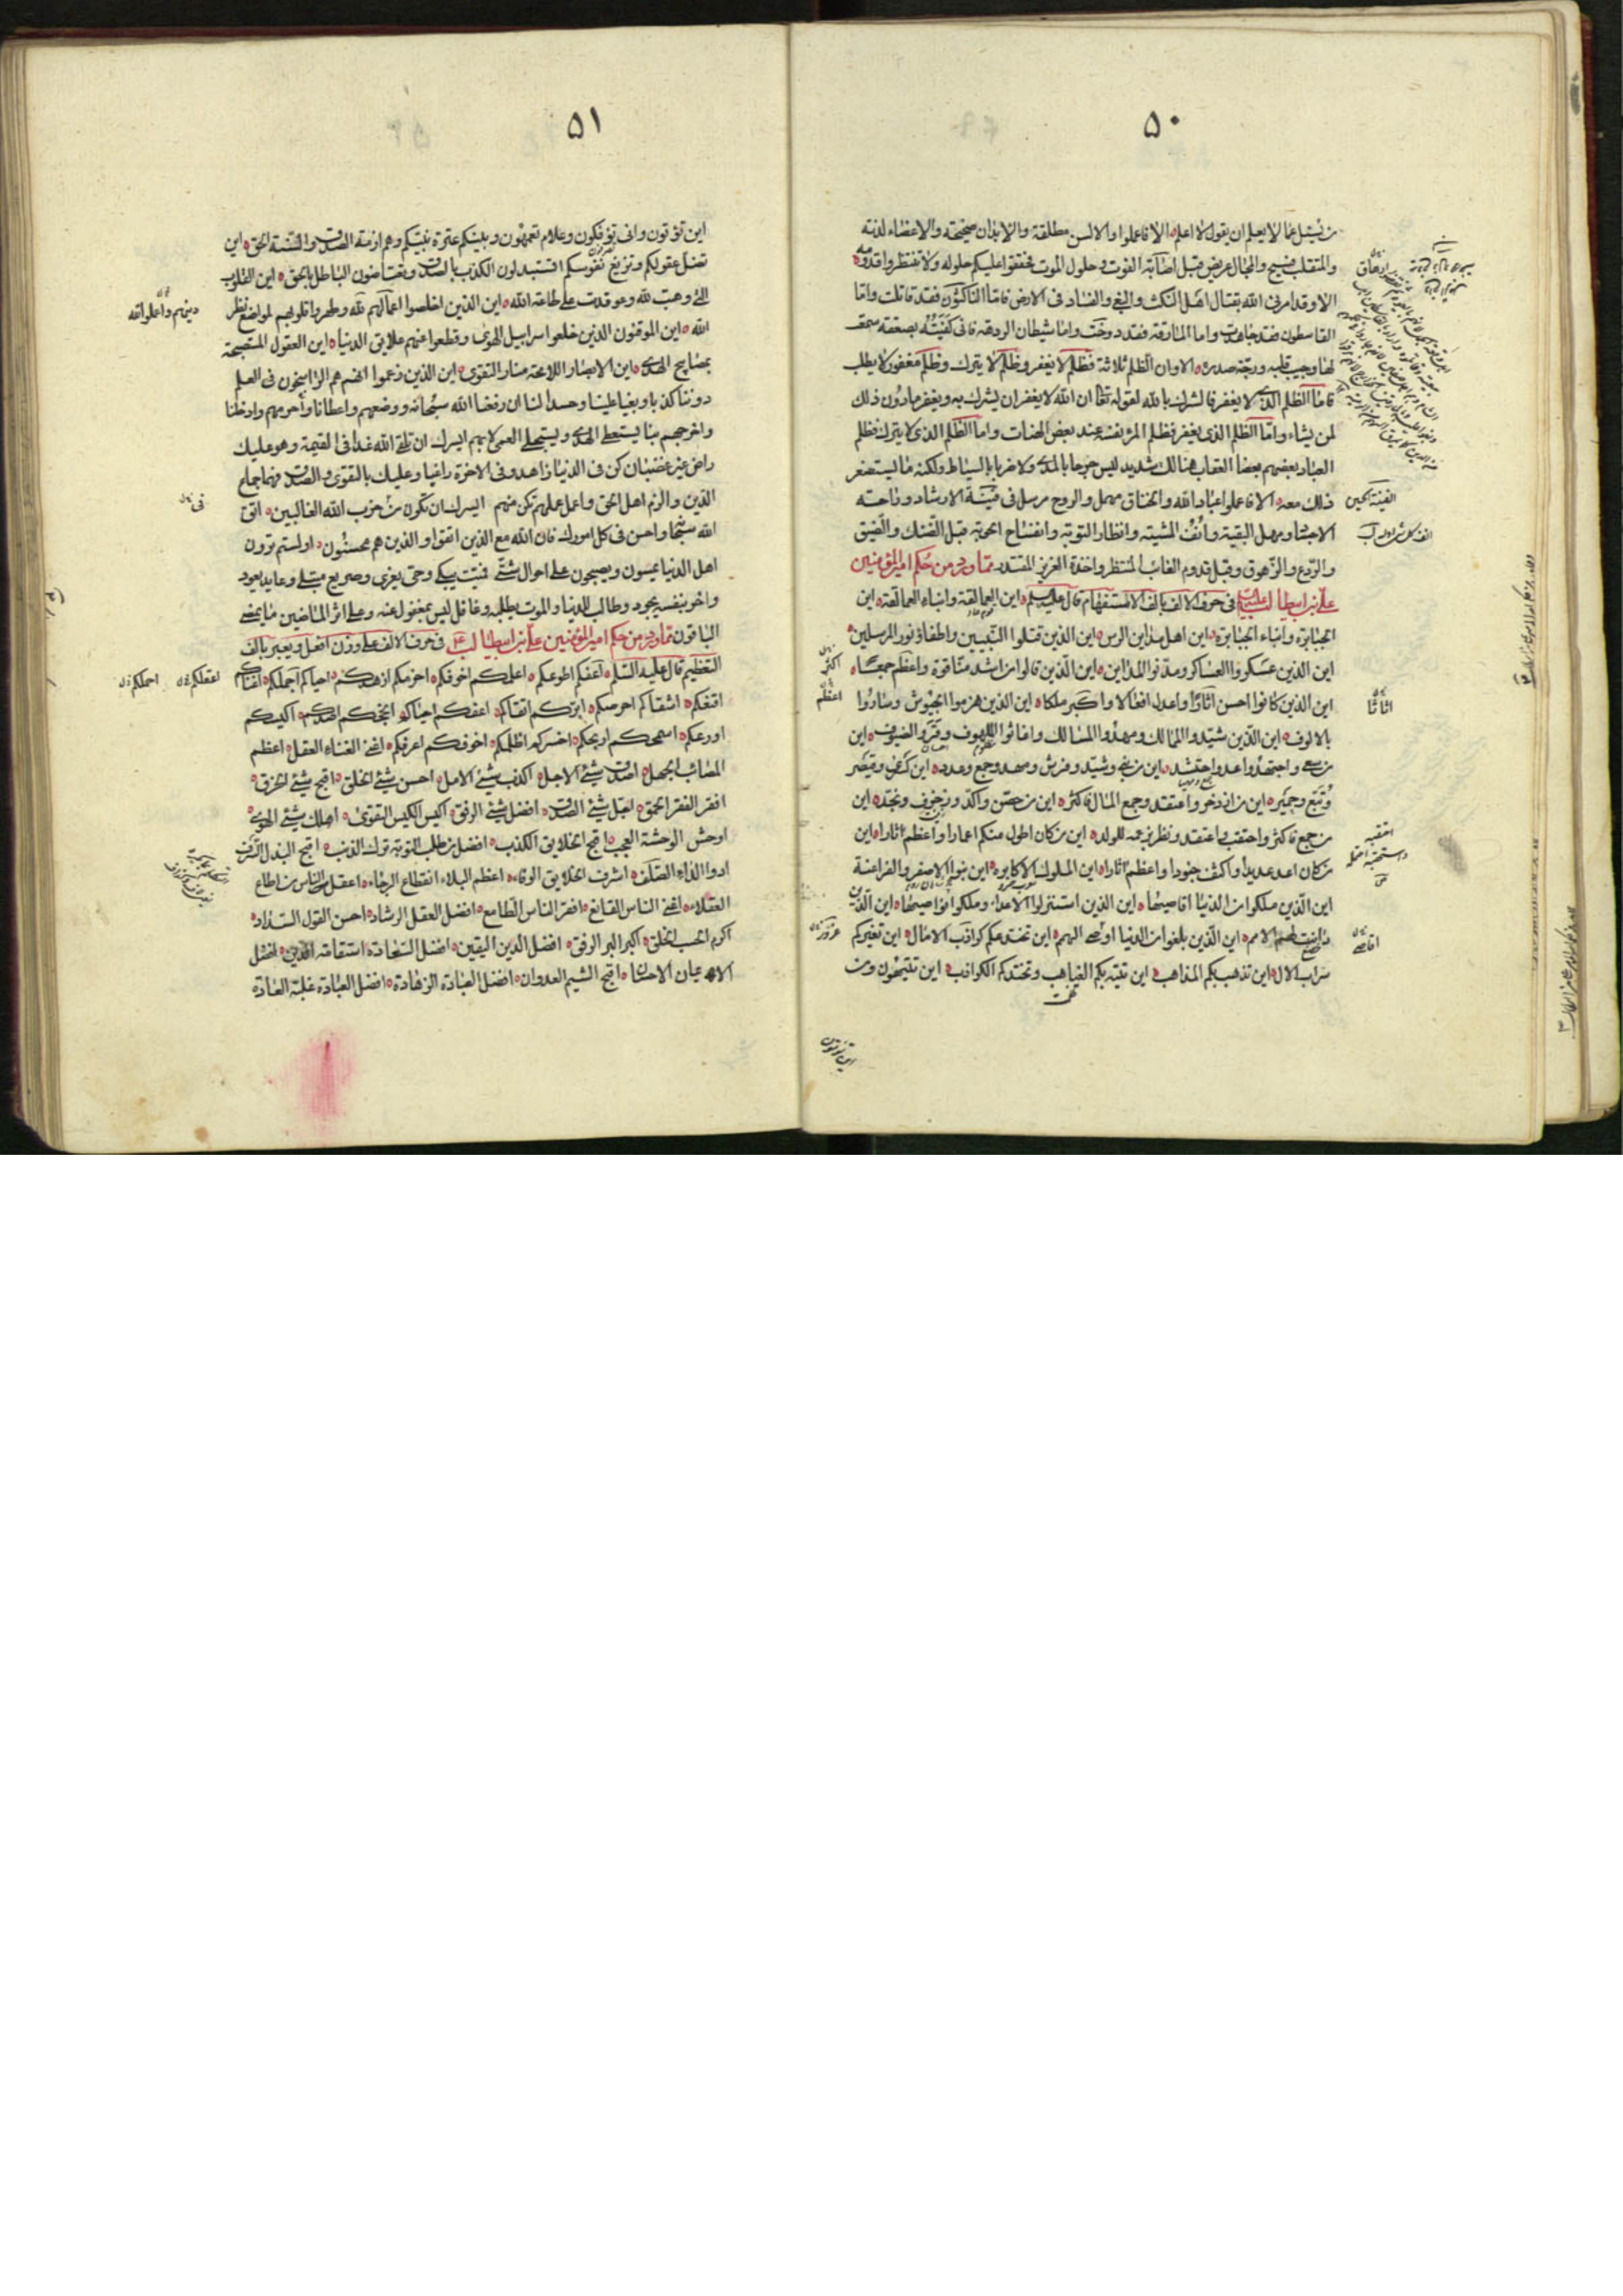 ٥٠
من يسئل عما لا يعلم ان يقول لا اعلم الا فاعملوا والالسن مطلقة والابدان صحيحة والاعضاء لدنة
والمنقلب فسيح والمجال عريض قبل اضاقة الفوت وحلول الموت فحققوا عليكم حلوله ولا تنتظروا قدومه
الا وقد امرنى الله بقتال اهل النكث والبغى والفساد فى الارض فاما الناكثون فقد قاتلت واما
القاسطون فقد جاهدت واما المارقة فقد دوخت واما شيطان الردهة فانى كفيته بصعقة سمعت
لها وجيب قلبه ورجة صدره الا وان الظلم ثلاثة فظلم لا يغفر وظلم لا يترك وظلم مغفور لا يطلب
فاما الظلم الذى لا يغفر فالشرك بالله لقوله تعالى ان الله لا يغفر ان يشرك به ويغفر ما دون ذلك
لمن يشاء واما الظلم الذى يغفر فظلم المرء نفسه عند بعض الهنات واما الظلم الذى لا يترك فظلم
العباد بعضهم بعضا العقاب هنالك شديد ليس جرحا بالمدى ولا ضربا بالسياط ولكنه ما يستصغر
ذلك معه الا فاعملوا عباد الله والخناق مهمل والروح مرسل فى فينة الارشاد وراحة
الاجساد ومهل البقية وانف المشية وانظار التوبة وانفساح الحوبة قبل الضنك والمضيق
والروع والزهوق وقبل قدوم الغائب المنتظر واخذة العزيز المقتدر مما ورد من حكم امير المؤمنين
على بن ابيطالب عليه السلام فى حرف الالف بالف الاستفهام قال عليه السلم اين العمالقة وابناء العمالقة اين
الجبابرة وابناء الجبابرة اين اهل مداين الرس اين الذين قتلوا النبيين واطفاؤ نور المرسلين
اين الذين عسكروا العساكر ومدنوا المداين اين الذين قالوا من اشد منا قوة واعظم جمعا
اين الذين كانوا احسن اثارا واعدل افعالا واكبر ملكا اين الذين هزموا الجيوش وساروا
بالالوف اين الذين شيدوا الممالك ومهدوا المسالك واغاثوا الملهوف وقروا الضيوف اين
من سعى واجتهد واعد واحتشد اين من بنى وشيد وفرش ومهد وجمع وعدد اين كسرى وقيصر
وتبع وحمير اين من ادخر واعتقد وجمع المال فاكثر اين من حصن واكد وزخرف ونجد اين
من جمع فاكثر واحتقب واعتقد ونظر بزعمه للولد اين من كان اطول منكم اعمارا واعظم اثارا اين
من كان اعد عديدا واكثف جنودا واعظم اثارا اين الملوك الاكابرة اين بنوا الاصفر والفراعنة
اين الذين ملكوا من الدنيا اقاصيها اين الذين استنزلوا الاعداء وملكوا نواصيها اين الذين
دانت لهم الامم اين الذين بلغوا من الدنيا اقصى الهمم اين تختدعكم كواذب الامال اين تغيركم
سراب الال اين تذهب بكم المذاهب اين تتيه بكم الغياهب وتختدعكم الكواذب اين تتيهون ومن
اكثر
اعظم
اثاثا
اقاصى
اين تؤتون
٥١
اين تؤتون وانى تؤفكون وعلام تعمهون وبينكم عترة نبيكم وهم ازمة الصدق والسنة الحق اين
تضل عقولكم وتزيغ نفوسكم اتستبدلون الكذب بالصدق وتعتاضون الباطل بالحق اين القلوب
التى وهبت لله وعوقدت على طاعة الله اين الذين اخلصوا اعمالهم لله وطهروا قلوبهم لمواضع نظر
الله اين الموقنون الذين خلعوا سرابيل الهوى وقطعوا عنهم علايق الدنيا اين العقول المستصبحة
بمصابيح الهدى اين الابصار اللامحة منار التقوى اين الذين زعموا انهم هم الراسخون فى العلم
دوننا كذبا وبغيا علينا وحسدا لنا ان رفعنا الله سبحانه ووضعهم واعطانا واحرمهم وادخلنا
واخرجهم بنا يستعطى الهدى ويستجلى العمى لا بهم ايسرك ان تلقى الله غدا فى القيمة وهو عليك
راض غير غضبان كن فى الدنيا زاهدا وفى الاخرة راغبا وعليك بالتقوى والصدق فهما جماع
الدين والزم اهل الحق واعمل عملهم تكن منهم ايسرك ان تكون من حزب الله الغالبين اتق
الله سبحانه واحسن فى كل امورك فان الله مع الذين اتقوا والذين هم محسنون اولستم ترون
اهل الدنيا يمسون ويصبحون على احوال شتى فميت يبكى وحى يعزى وصريع مبتلى وعايد يعود
واخر بنفسه يجود وطالب للدنيا والموت يطلبه وغافل ليس بمغفول عنه وعلى اثر الماضين ما يمضى
الباقون مما ورد من حكم امير المؤمنين على بن ابيطالب ع فى حرف الالف على وزن افعل ويعبر بالف
التعظيم قال عليه السلم اعفكم اطوعكم اعلمكم اخوفكم احزمكم ازهدكم احياكم اجملكم اغناكم
اقنعكم اشقاكم احرصكم ابركم اتقاكم اعفكم احياكم انجحكم اصدقكم اكيسكم
اورعكم اسمحكم اربحكم اخسركم اظلمكم اخوفكم اعرفكم اغنى الغناء العقل اعظم
المصائب الجهل اصدق شىء الاجل اكذب شىء الامل احسن شىء الخلق اقبح شىء الخرق
افقر الفقر الحمق اجل شىء الصدق افضل شىء الرفق اكيس الكيس التقوى اهلك شىء الهوى
اوحش الوحشة العجب اقبح الخلايق الكذب افضل من طلب التوبة ترك الذنب اقبح البذل السرف
ادوا الداء الصلف اشرف الخلايق الوفاء اعظم البلاء انقطاع الرجاء اعقل الناس من اطاع
العقلاء اغنى الناس القانع افقر الناس الطامع افضل العقل الرشاد احسن القول السداد
اكرم الحسب الخلق اكبر البر الرفق افضل الدين اليقين افضل السعادة استقامة الدين افضل
الايمان الاحسان اقبح الشيم العدوان افضل العبادة الزهادة افضل العبادة غلبة العادة
دينهم واعلموا انه
فى
اعقلكم
احملكم